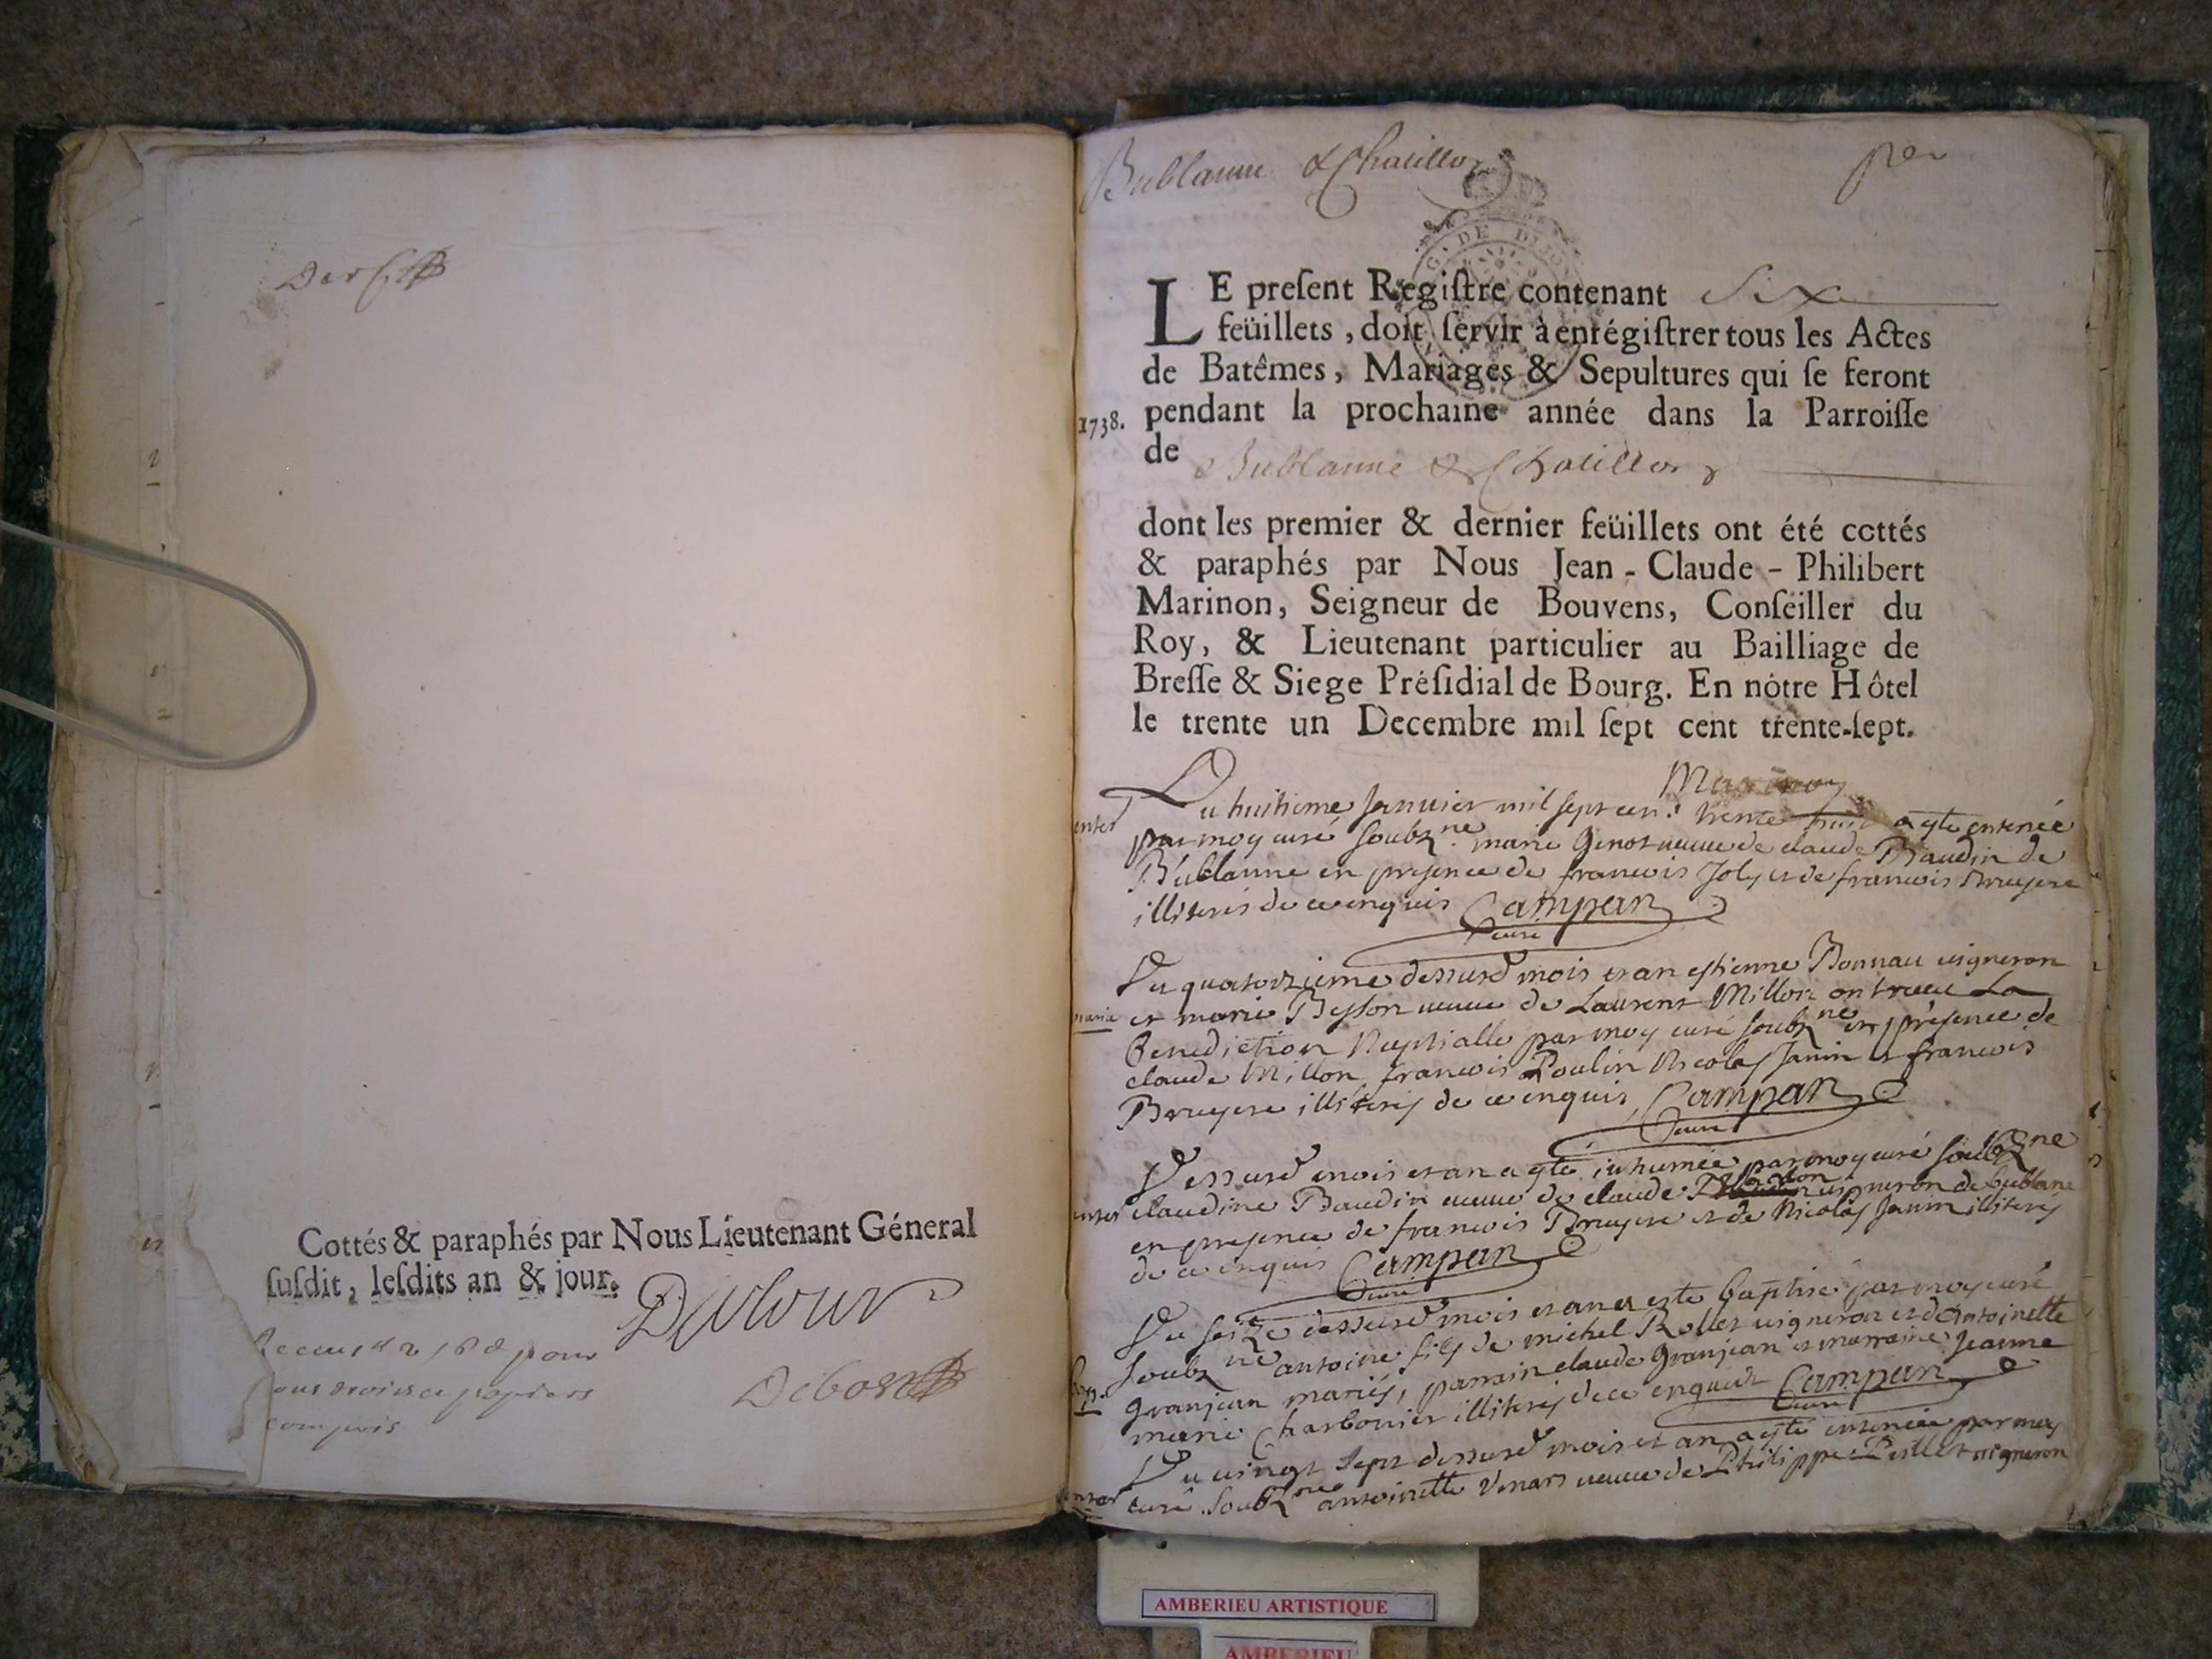 Cottés & paraphés par Nous Lieutenant Géneral
ſuſdit, leſdits an & jour.
pour
compris
Bublanne & Chatillon
per
G. DE DIJO
LE preſent Regiſtre contenant Six
feüillets, doit ſervir à enrégiſtrer tous les Actes
de Batêmes, Mariages & Sepultures qui ſe feront
1738. pendant la prochaine année dans la Parroiſſe
de Bublanne & Chatillon
dont les premier & dernier feüillets ont été cottés
& paraphés par Nous Jean-Claude-Philibert
Marinon, Seigneur de Bouvens, Conſeiller du
Roy, & Lieutenant particulier au Bailliage de
Breſſe & Siege Préſidial de Bourg. En nôtre Hôtel
le trente un Decembre mil ſept cent trente-ſept.
Marinon
Du huitieme Januier mil sept cent trente huit a esté enterrée
enter par moy curé soubzne marie Genot ueuue de claude Baudin de
Bublanne en presence de francois Joly et de francois Bruyere
illiterés de ce enquis Campan
curé
Du quatorzieme dessusd mois et an estienne Bonnau uigneron
maria et marie Besson ueuue de Laurent Millon ont receu La
Benediction Nuptialle par moy curé soubzne en présence de
claude Millon francois Poulin Nicolas Janin et francois
Bruyere illiterés de ce enquis Campan
curé
Dessusd mois et an a esté inhumée par moy curé soubzne
enter claudine Baudin ueuue de claude uigneron de bublane
en presence de francois Bruyere et de Nicolas Janin illiterés
de ce enquis Campan
curé
Du seize dessusd mois et an a esté baptisé par moy curé
soubzne antoine fils de michel Rollet uigneron et d'antoinette
Bap. Granjean mariés, parrain claude Granjean et marraine Jeanne
marie Charbonier illiterés de ce enquis Campan
curé
Du uingt sept dessusd mois et an a esté enterrée par moy
enter curé soubzne antoinette ueuue de Philippe Peillet uigneron
AMBERIEU ARTISTIQUE
AMBERIEU